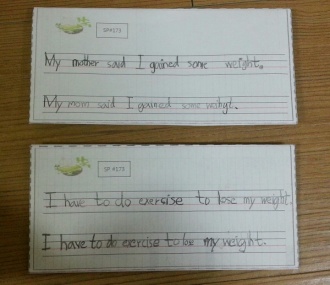 SP#173
My mother said I gained some weight.
My mom said I gained some weihgt.
SP #173
I have to do exercise to lose my weight.
I have to do exercise to lose my weight.